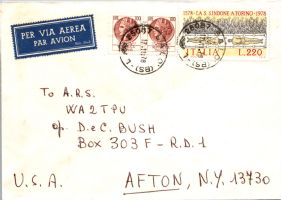 PER VIA AEREA
PAR AVION
1578 - LA S. SINDONE A TORINO - 1978
ITALIA L.220
To A.R.S.
WA2TPU
% D.eC. BUSH
Box 303F - R.D.1
U.S.A. AFTON, N.Y. 13730